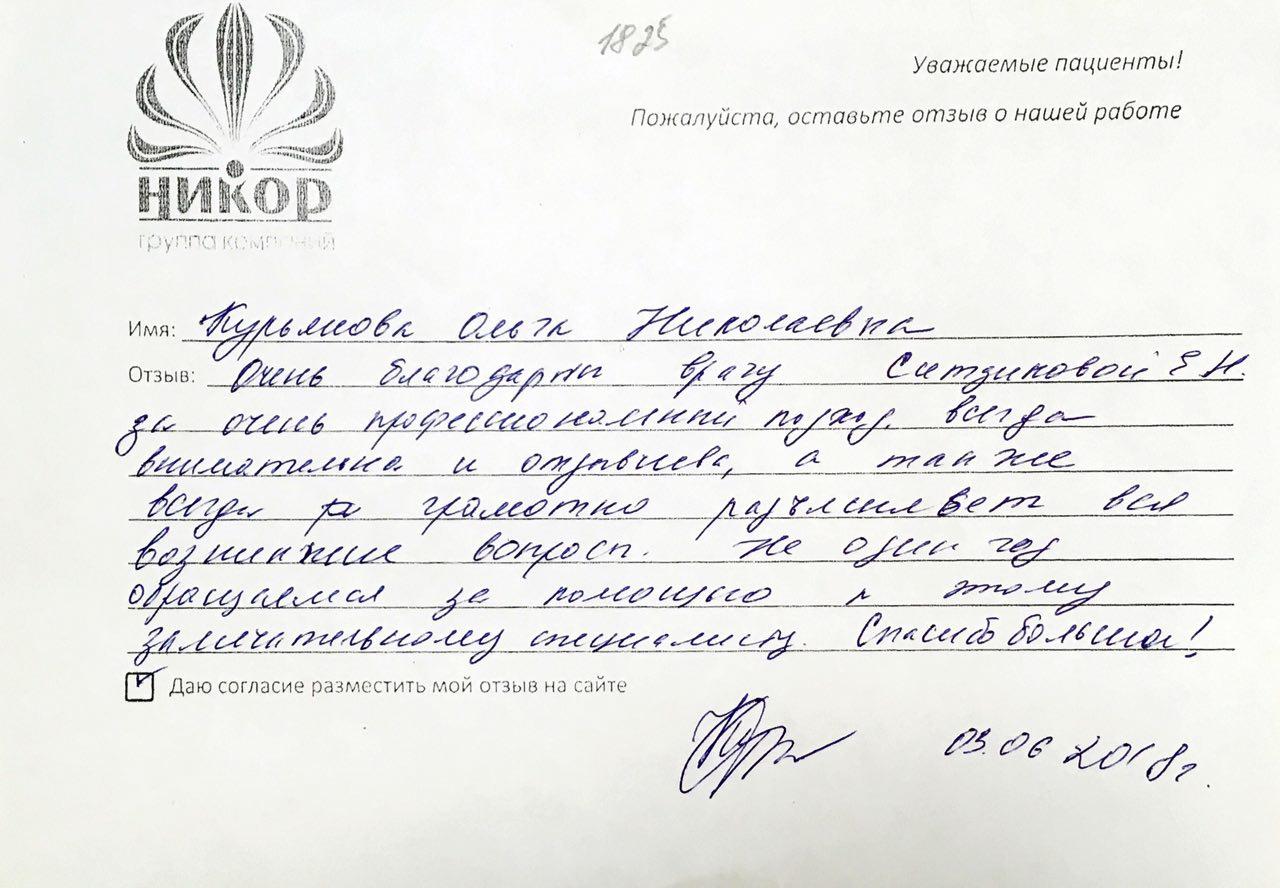 1825
Уважаемые пациенты!
Пожалуйста, оставьте отзыв о нашей работе
НИКОР
группа компаний
Имя: Курьянова Ольга Николаевна
Отзыв: Очень благодарны врачу Ситдиковой Е Н.
за очень профессиональный подход, всегда
внимательна и отзывчива, а так же
всегда грамотно разъясняет все
возникшие вопросы. Не один год
обращаемся за помощью к этому
замечательному специалисту. Спасибо большое!
Даю согласие разместить мой отзыв на сайте
03.06 2018г.